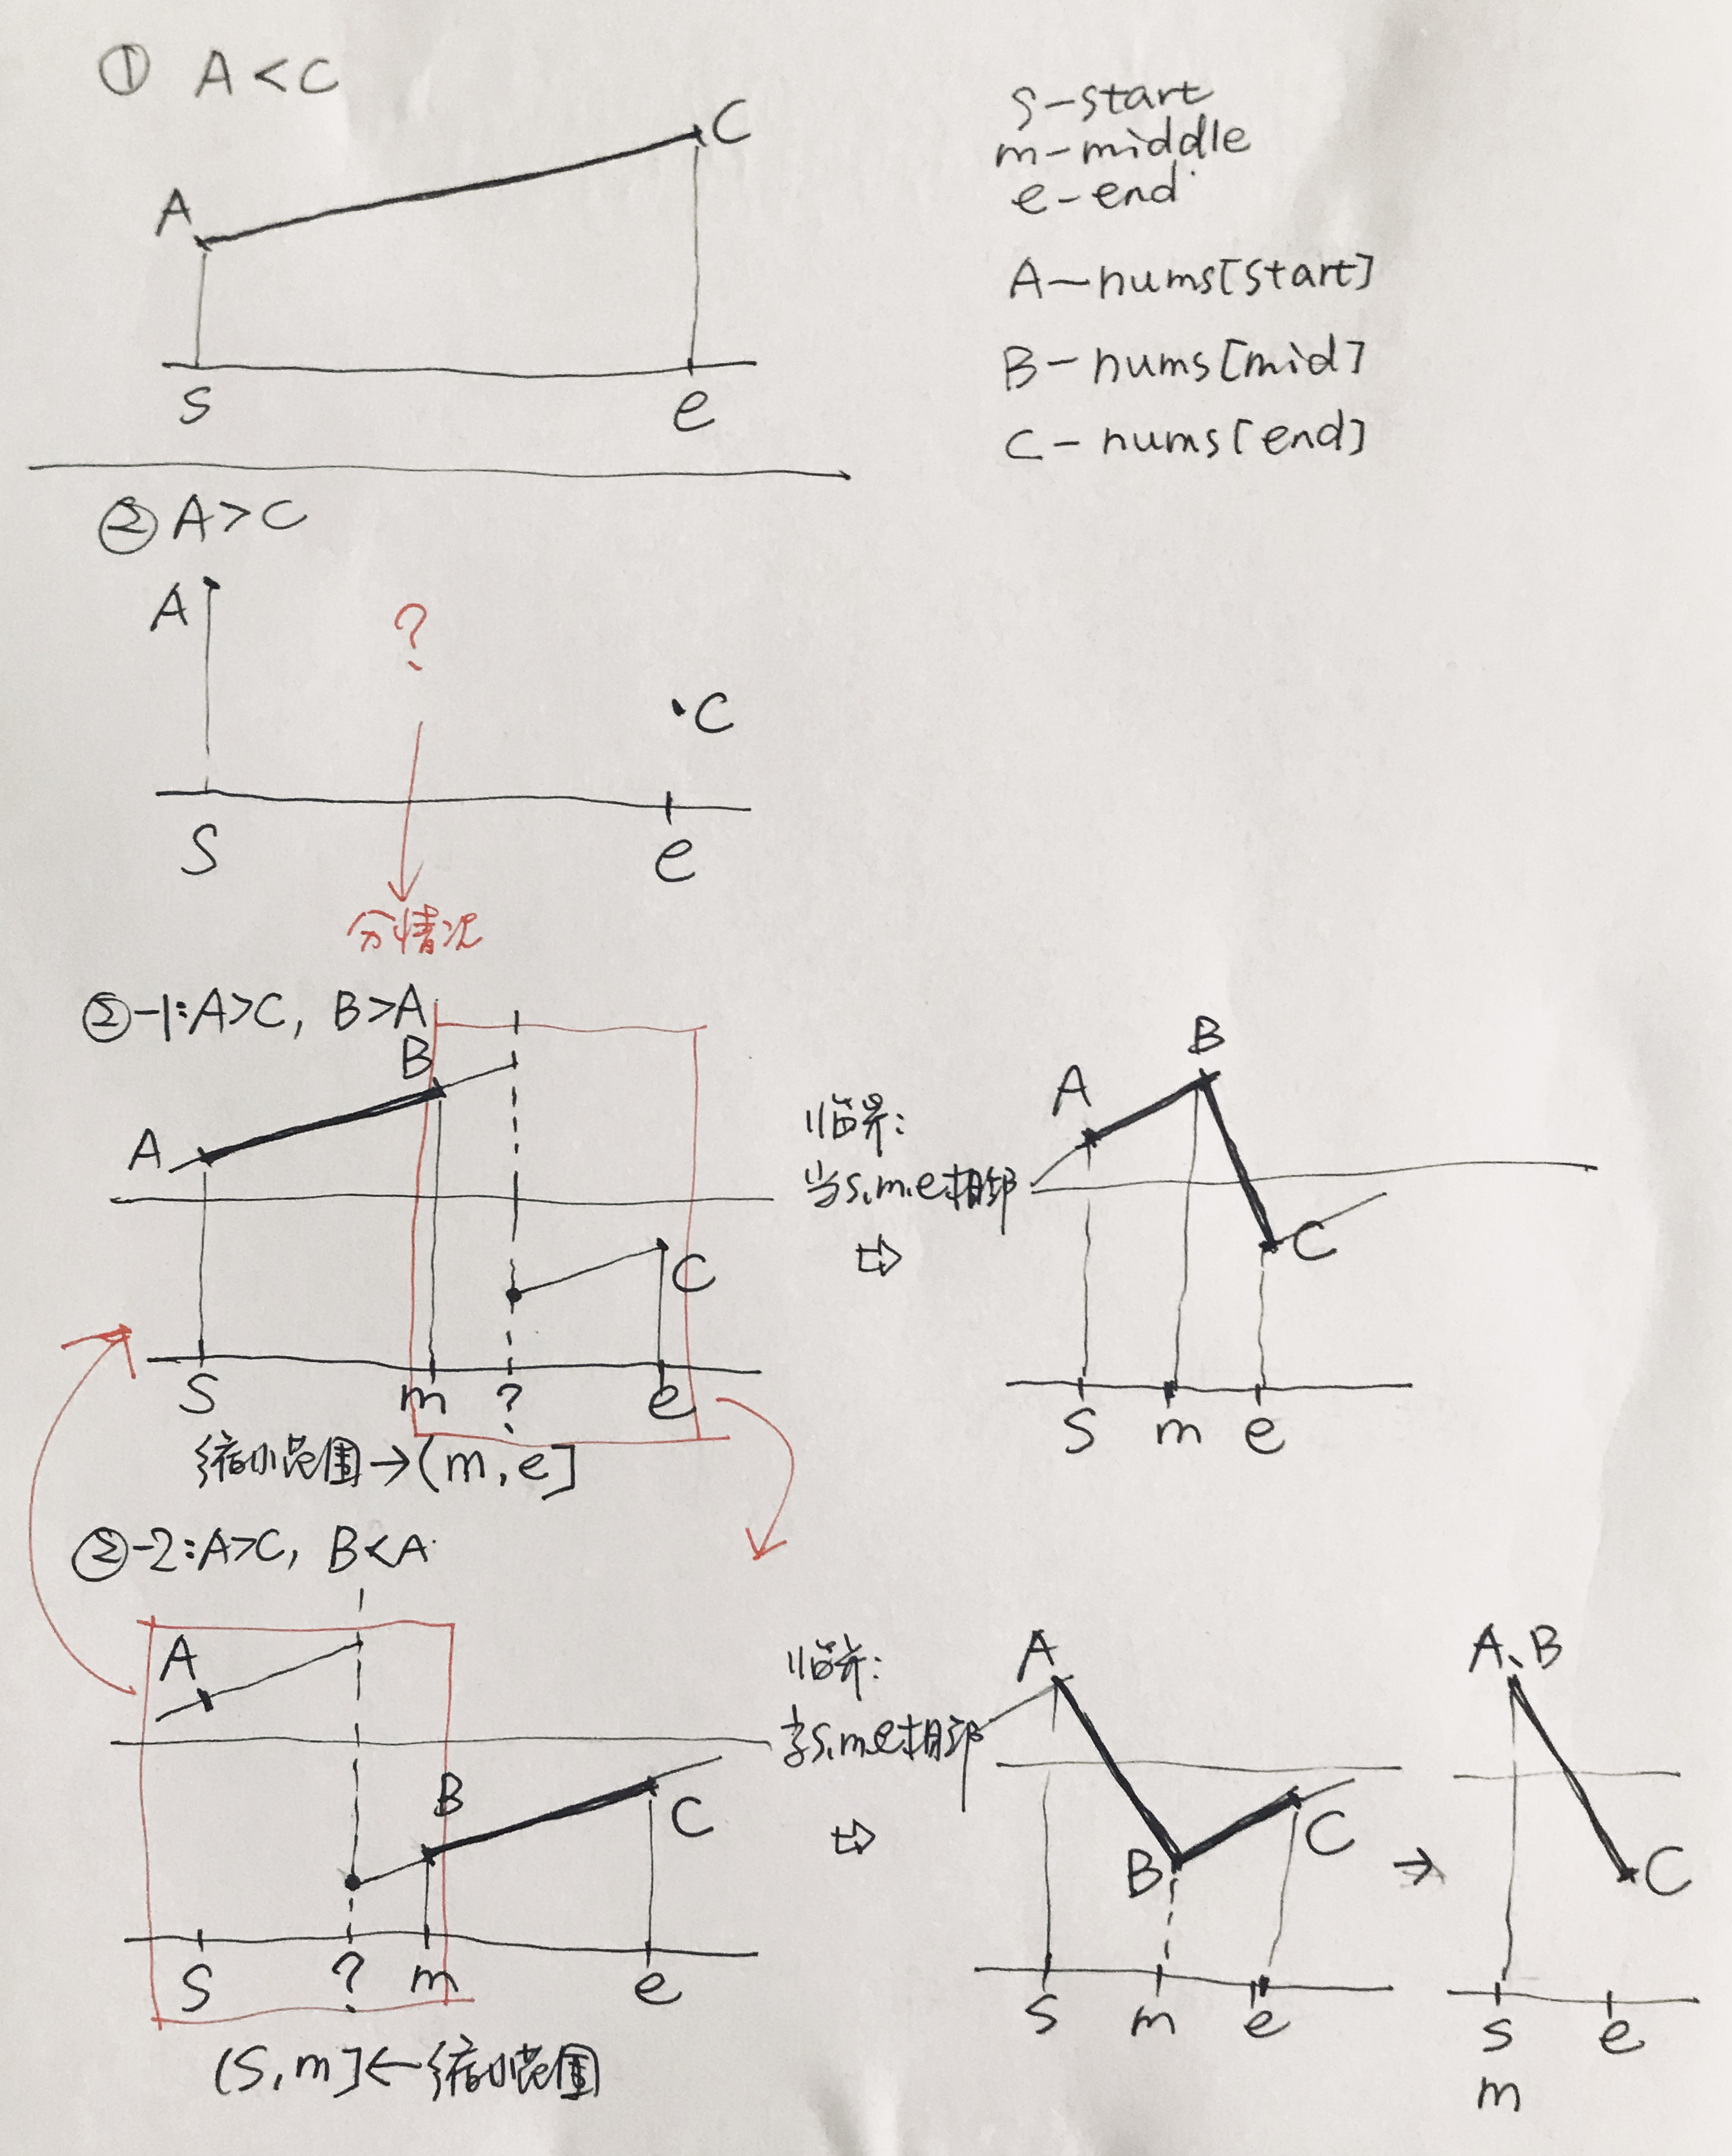 ① A<C
s-start
m-middle
e-end
A-nums[start]
B-nums[mid]
C-nums[end]
A
C
s
e
② A>C
A
?
C
s
e
分情况
②-1:A>C, B>A
B
A
C
s
m
?
e
缩小范围→(m,e]
临界:
当s,m,e相邻
⇨
A
B
C
s
m
e
②-2:A>C, B<A
A
B
C
s
?
m
e
(s,m]←缩小范围
临界:
当s,m,e相邻
⇨
A
B
C
s
m
e
→
A、B
C
s
e
m